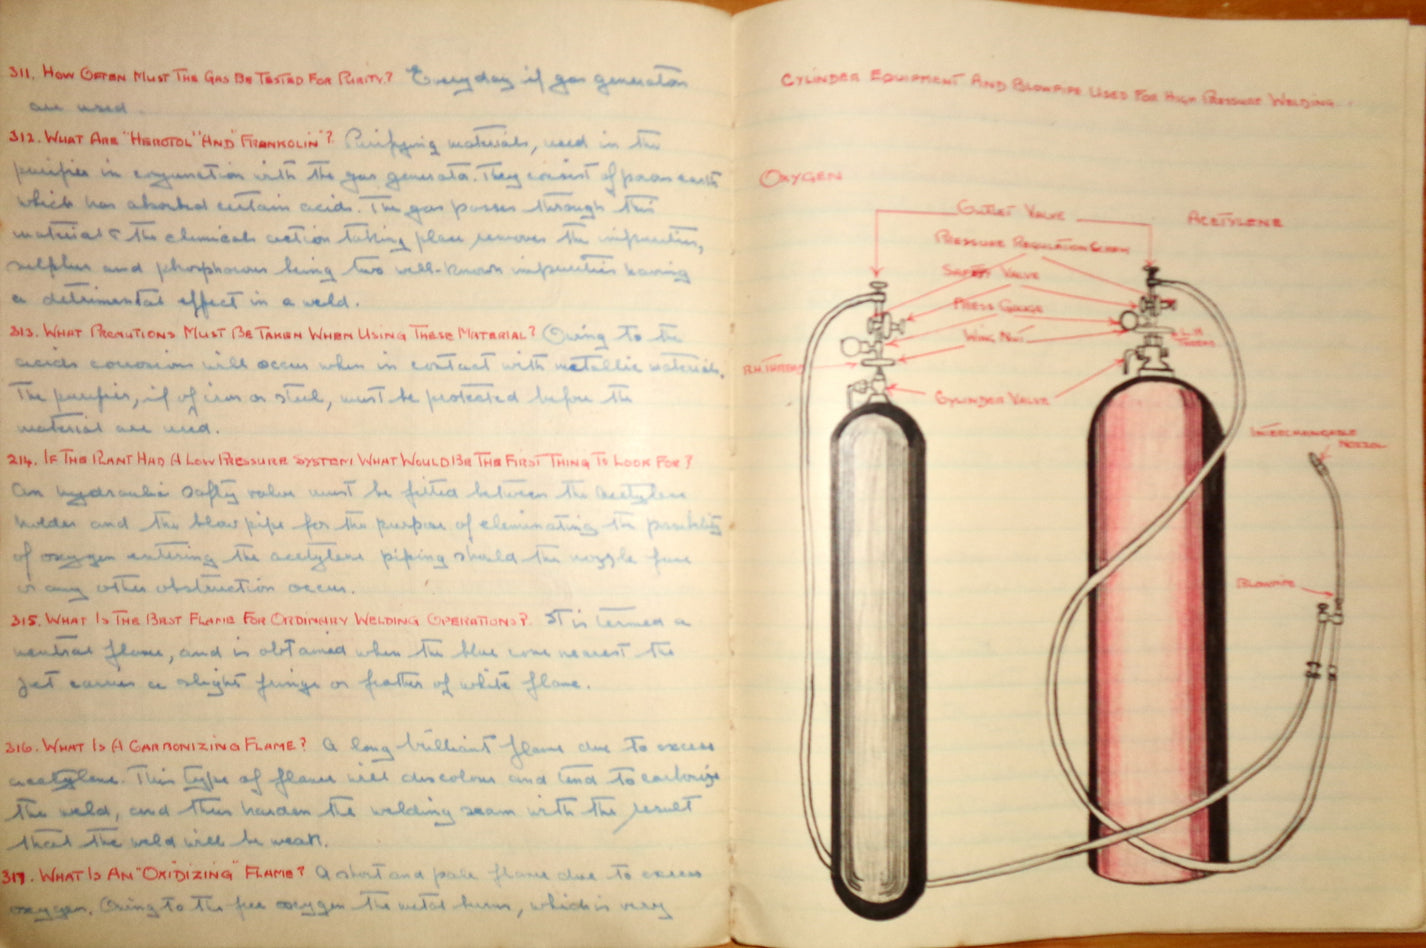 311. How Often Must The Gas Be Tested For Purity? Everyday if gas generators
are used.
312. What Are "Herotol" And "Frankolin"? Purifying materials, used in the
purifier in conjunction with the gas generator. They consist of porous earth
which has absorbed certain acids. The gas passes through this
material & the chemical action taking place removes the impurities,
sulphur and phosphorous being two well-known impurities having
a detrimental effect in a weld.
313. What Precautions Must Be Taken When Using These Material? Owing to the
acids corrosion will occur when in contact with metallic materials.
The purifier, if of iron or steel, must be protected before the
material are used.
214. If The Plant Had A Low Pressure System What Would Be The First Thing To Look For?
An hydraulic safty valve must be fitted between the acetylene
holder and the blow pipe for the purpose of eleminating the possibility
of oxygen entering the acetylene piping should the nozzle fuse
or any other obstruction occur.
315. What Is The Best Flame For Ordinary Welding Operations? It is termed a
neutral flame, and is obtained when the blue cone nearest the
jet carries a slight fringe or feather of white flame.
316. What Is A Carbonizing Flame? A long brilliant flame due to excess
acetylene. This type of flame will discolour and tend to carbonize
the weld, and thus harden the welding seam with the result
that the weld will be weak.
317. What Is An "Oxidizing" Flame? A short and pale flame due to excess
oxygen. Owing to the free oxygen the metal burns, which is very
Cylinder Equipment And Blowpipe Used For High Pressure Welding.
Oxygen
Outlet Valve
Acetylene
Pressure Regulation Screw
Safety Valve
Press Gauge
Wing Nut
L.H. Thread
R.H. Thread
Cylinder Valve
Interchangable
Nozzel
Blowpipe